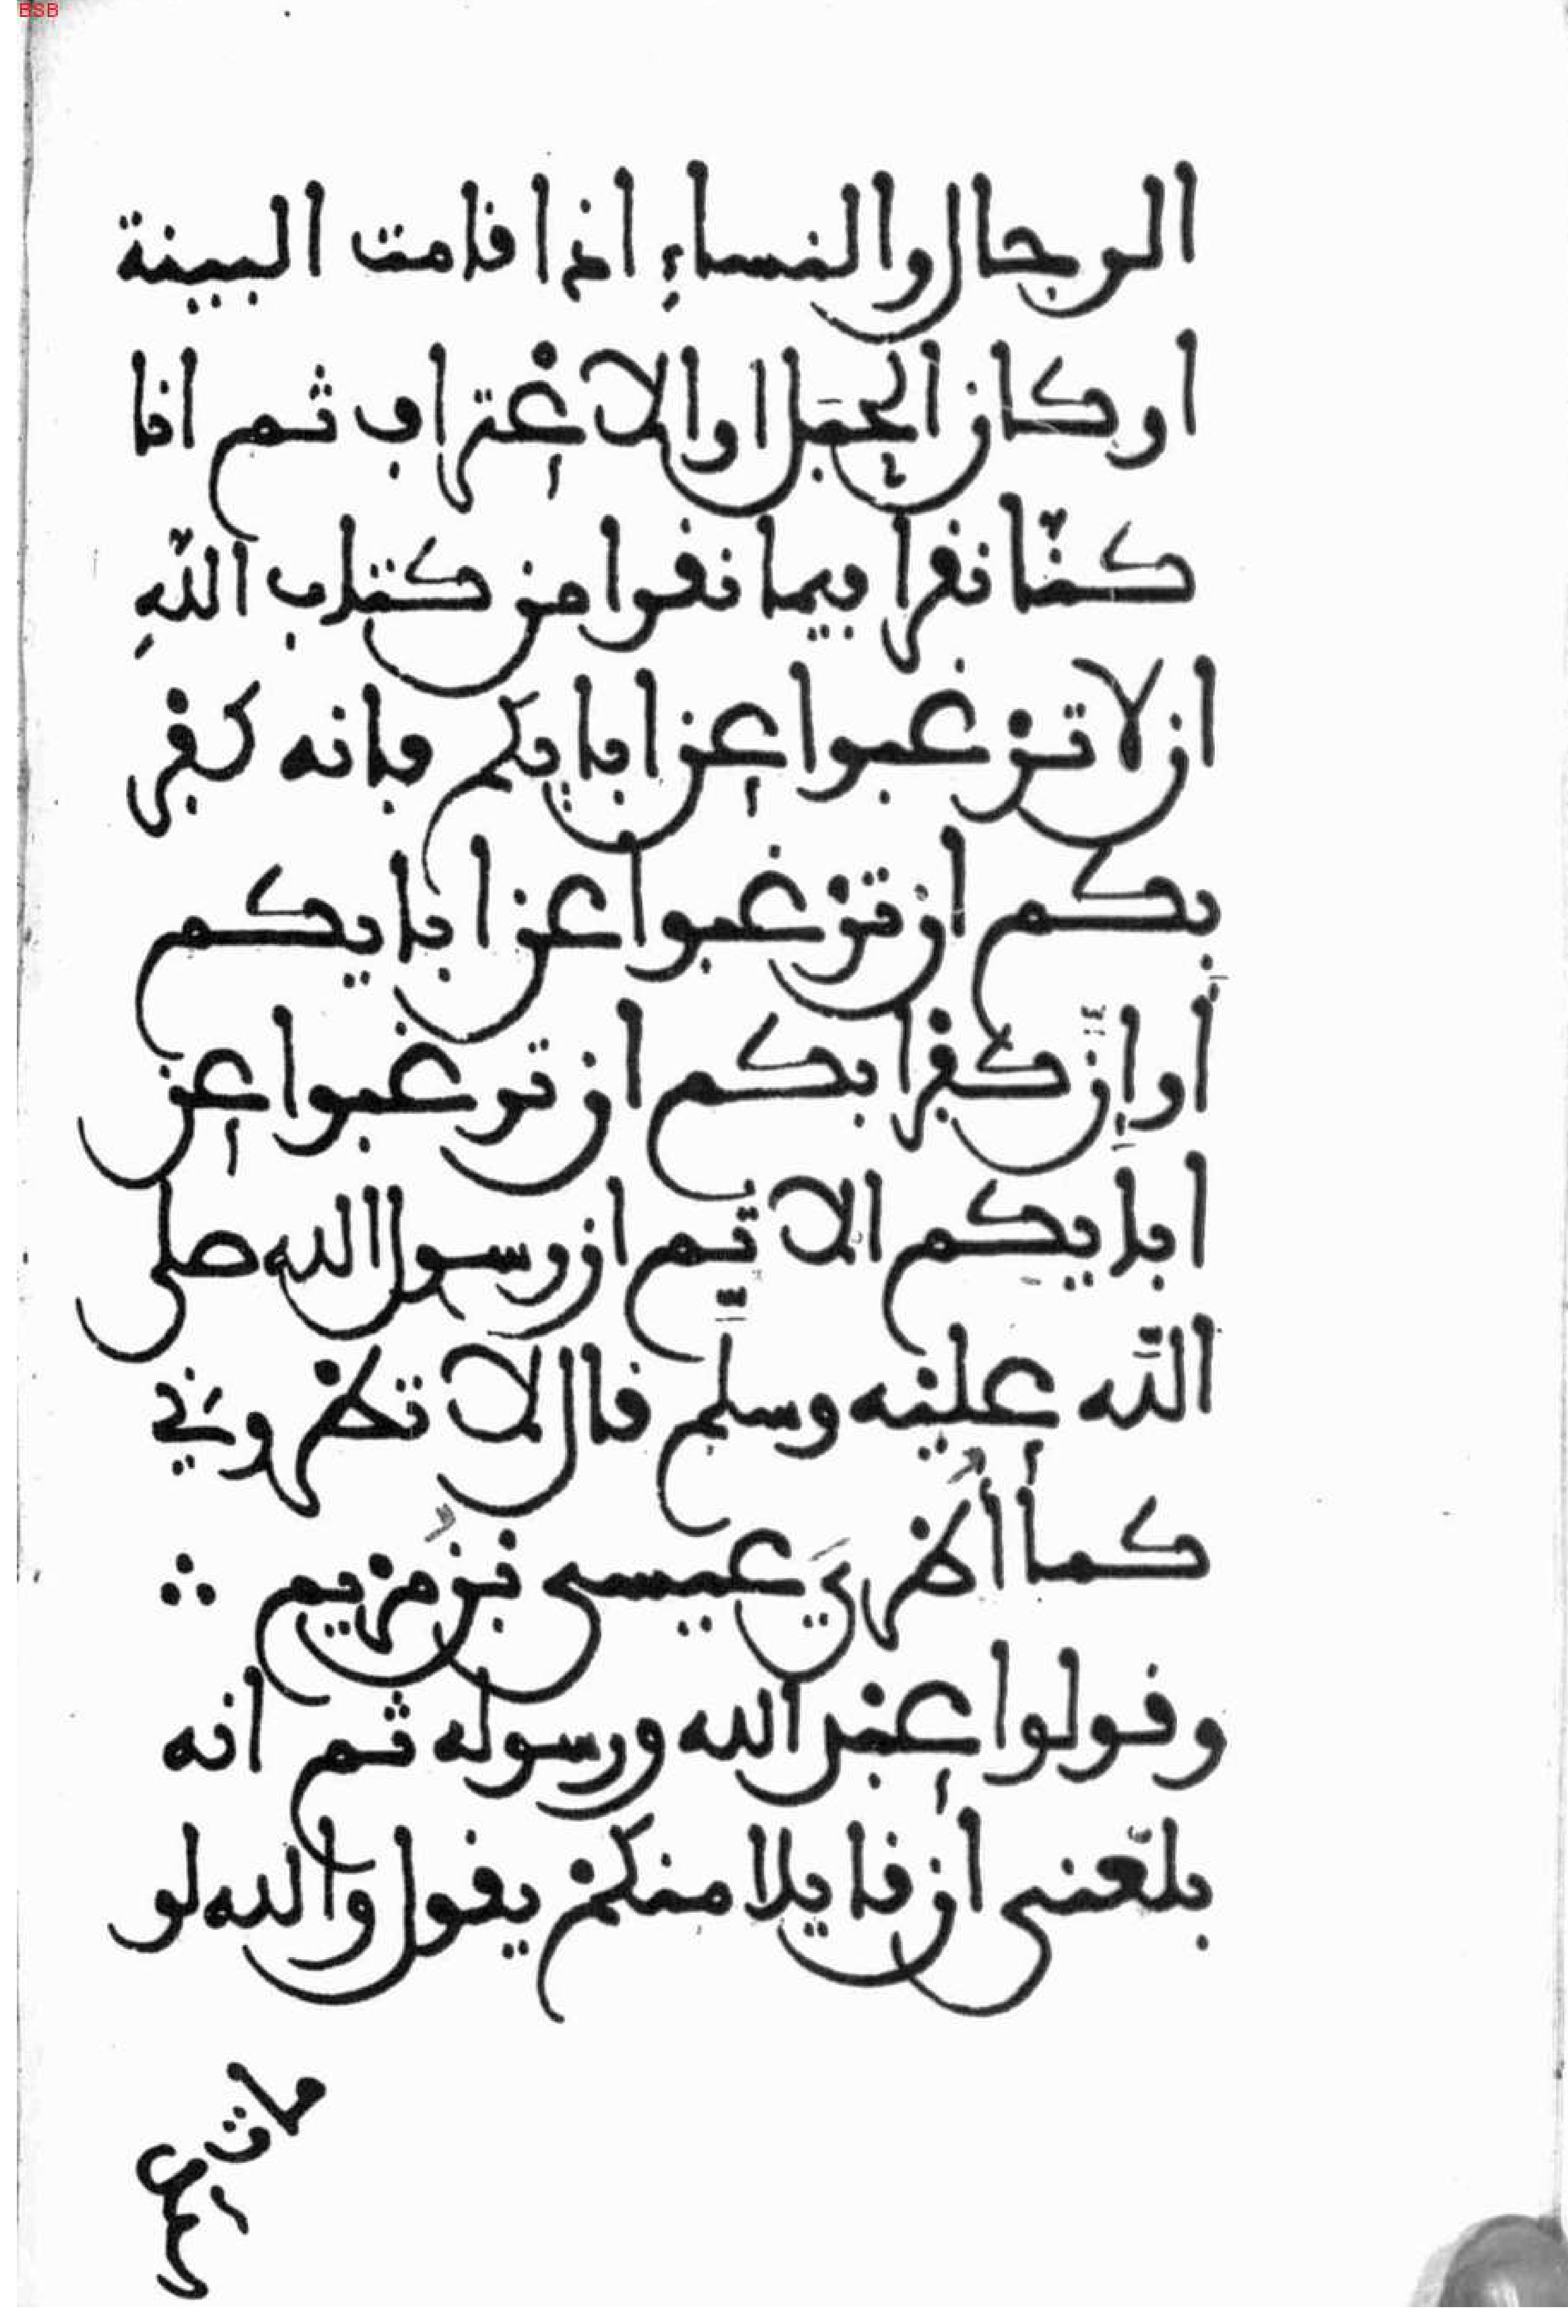 BSB
الرجال والنساء اذا قامت البينة
او كان الحبل او الاعتراف ثم انا
كنّا نقرا فيما نقرا من كتاب الله
ان لا ترغبوا عن ابايكم فانه كفر
بكم ان ترغبوا عن ابايكم
او انّ كفرا بكم ان ترغبوا عن
ابايكم الا ثم ان رسول الله صلى
الله عليه وسلم قال لا تطروني
كما أطري عيسى بن مريم ∴
وقولوا عبد الله ورسوله ثم انه
بلغني ان قايلا منكم يقول والله لو
مات
عمر